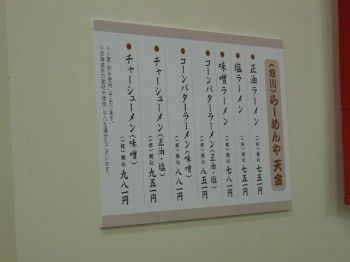 (旭川)らーめんや天金
正油ラーメン (一杯)税込 七五一円
塩ラーメン (一杯)税込 七五一円
味噌ラーメン (一杯)税込 七八一円
コーンバターラーメン(正油・塩) (一杯)税込 八五一円
コーンバターラーメン(味噌) (一杯)税込 八八一円
チャーシューメン(正油・塩) (一杯)税込 九五一円
チャーシューメン(味噌) (一杯)税込 九八一円